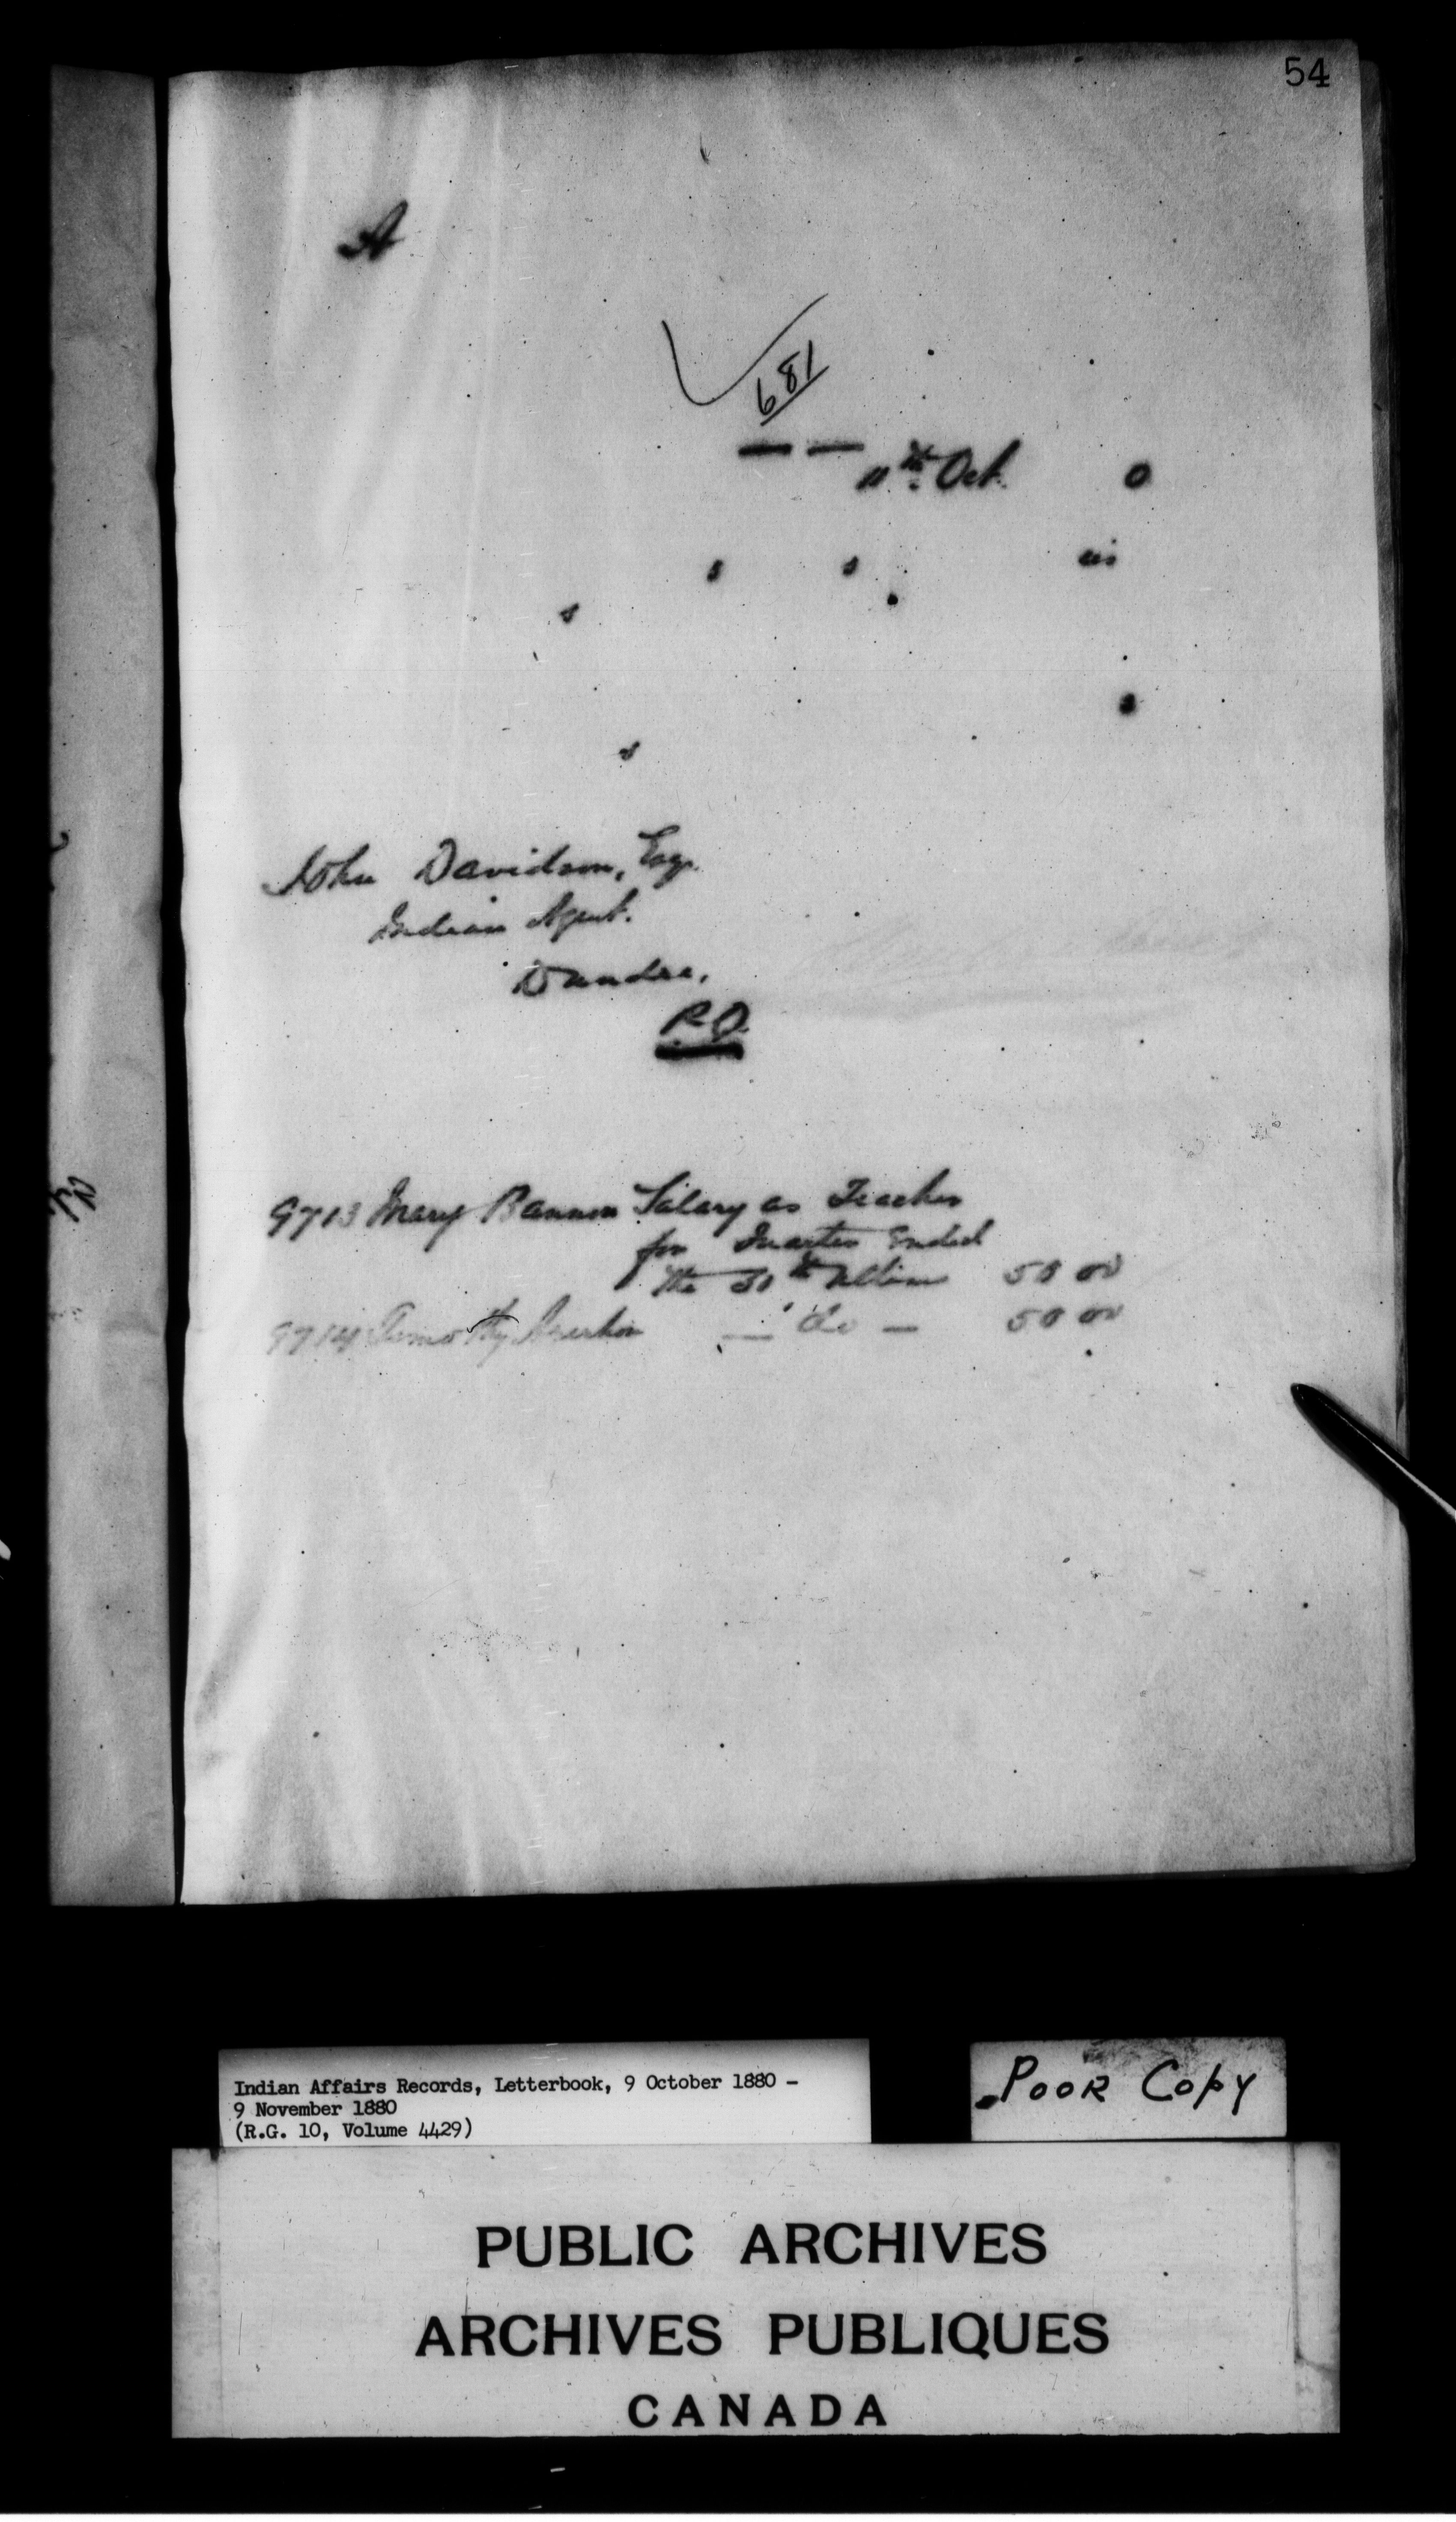 54
A
681
— — 11th Oct. 0
s s us
s
s
s
John Davidson, Esq.
Indian Agent.
Dundee,
P.Q.
9713 Mary Bannon Salary as Teacher
for Quarter Ended
the 30th Ultimo 50 00
9714 Timothy — do — 50 00
Indian Affairs Records, Letterbook, 9 October 1880 –
9 November 1880
(R.G. 10, Volume 4429)
POOR COPY
PUBLIC ARCHIVES
ARCHIVES PUBLIQUES
CANADA